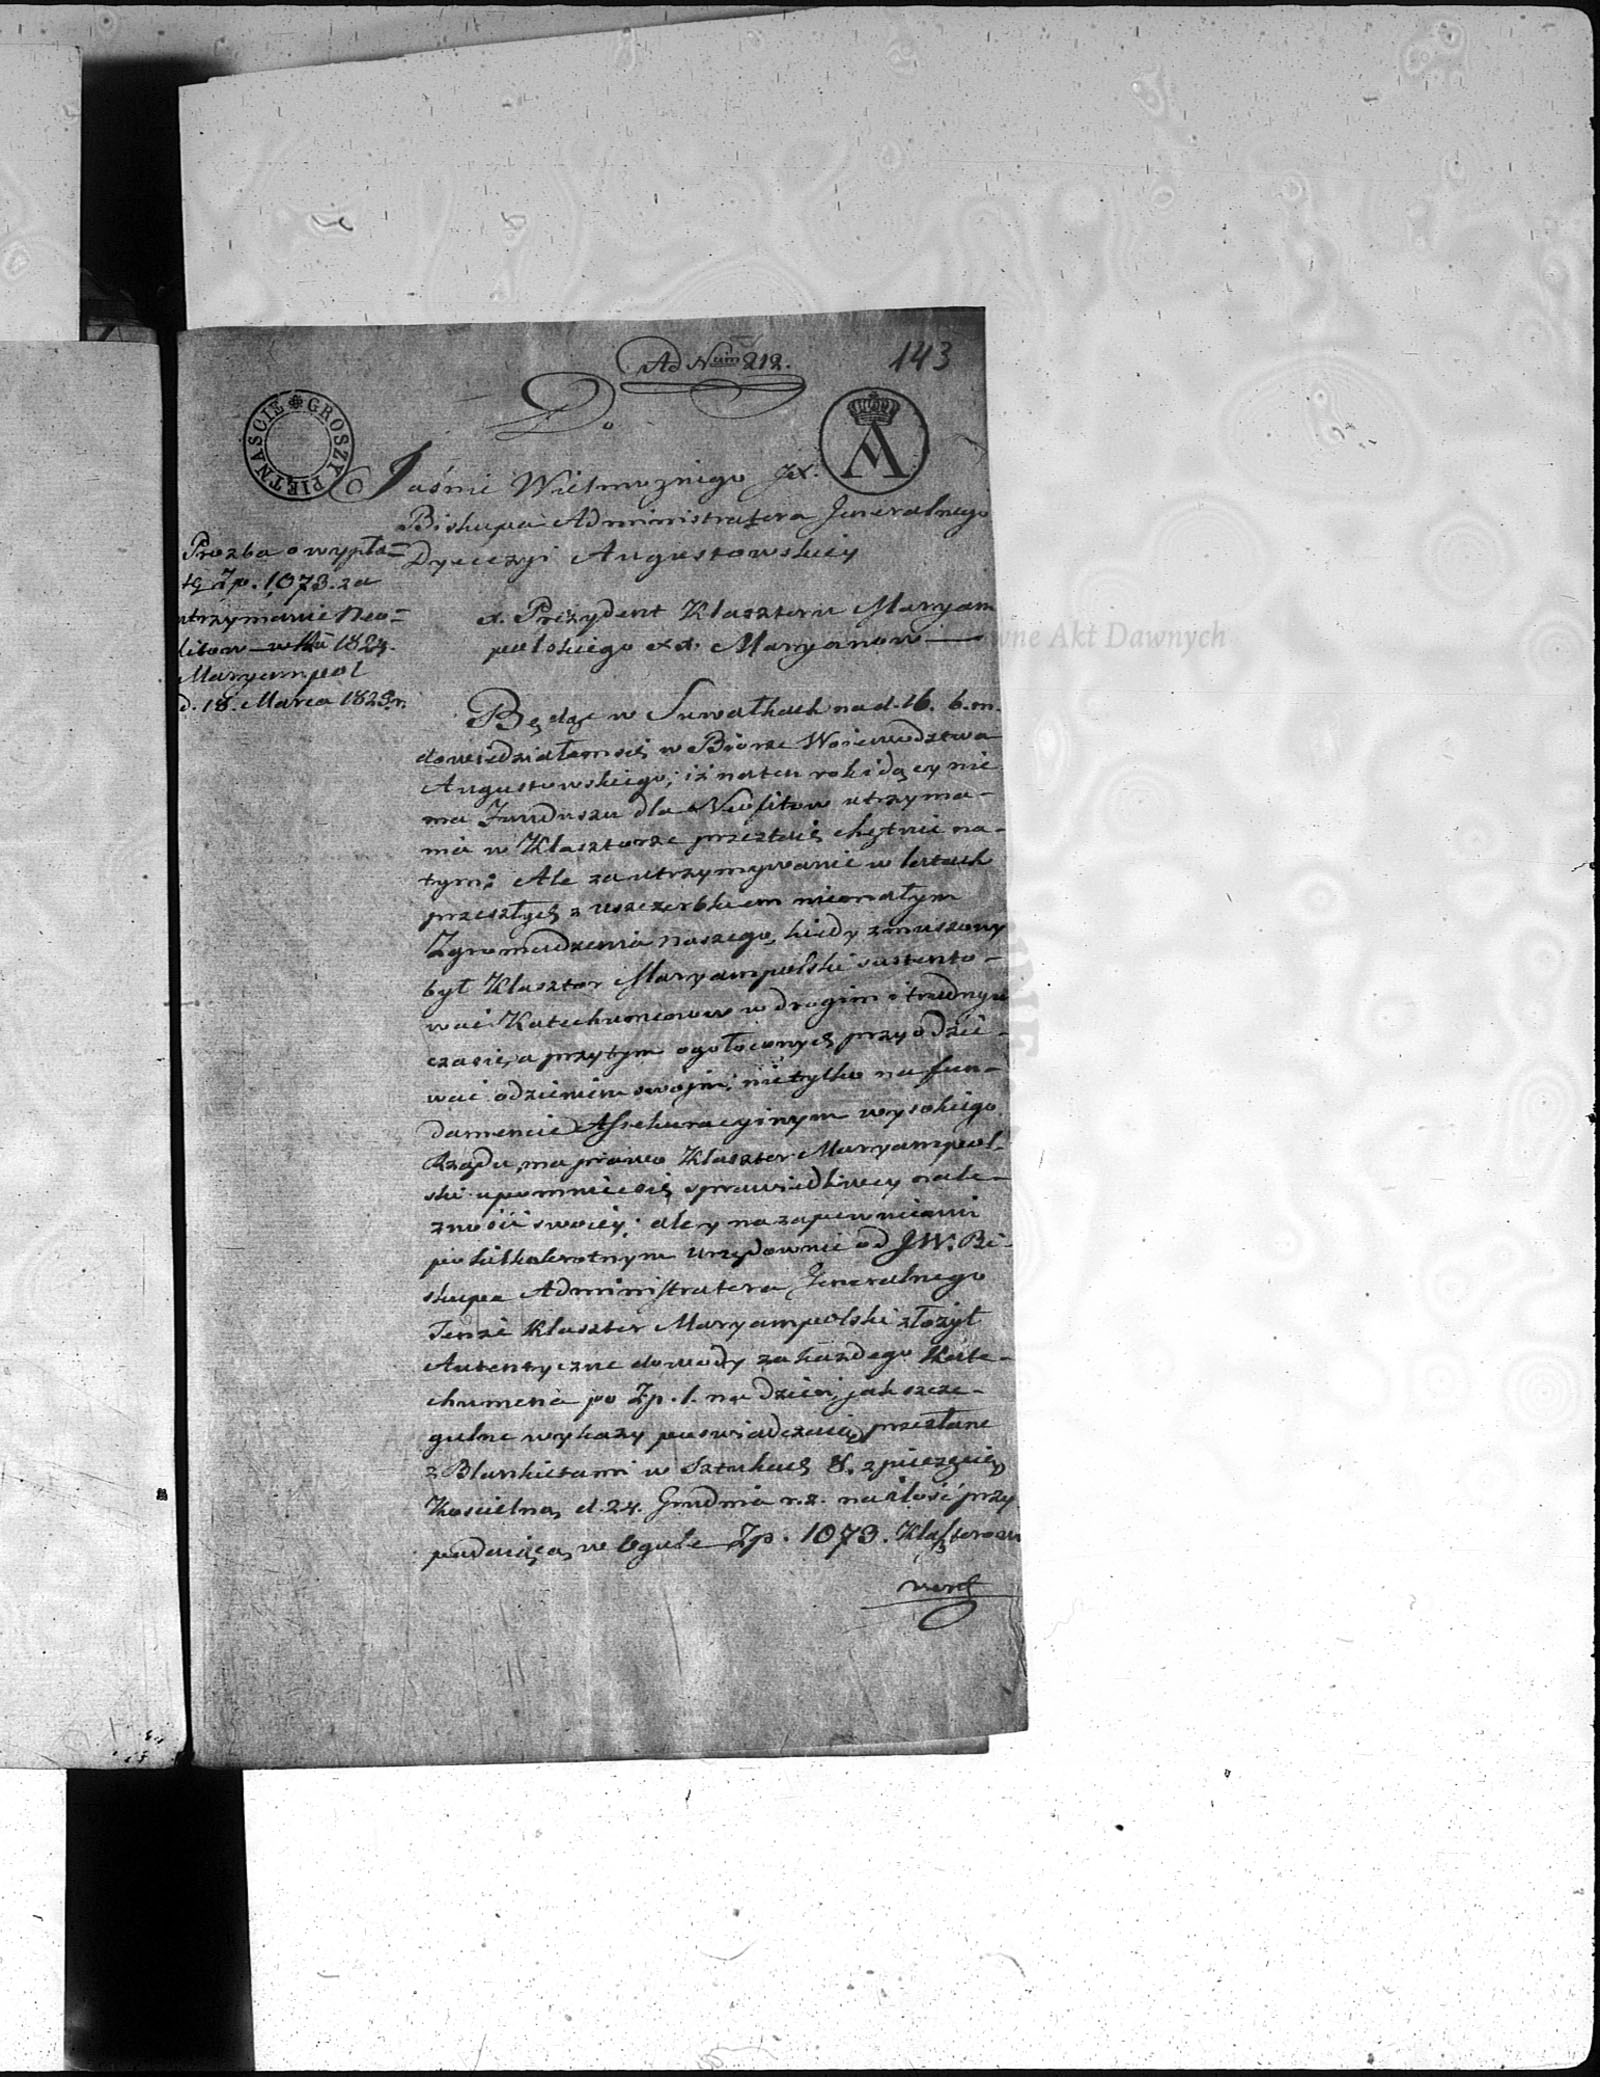 Ad Num 212.
143
GROSZY PIĘTNAŚCIE
Do
Jaśnie Wielmoznego JX.
Biskupa Administratora Jeneralnego
Dyecezyi Augustowskiey
Prozba o wypła=
tę Zp. 1,073. za
utrzymanie Neo=
fitow w 1824.
Maryampol
d. 18. Marca 1825. r.
x. Prezydent Klasztoru Maryam
polskiego xx. Maryanow
Będąc w Suwałkach na d. 16. b. m.
dowiedziałem się w Biorze Woiewodztwa
Augustowskiego; iż na ten rok idący nie
ma Funduszu dla Neofitow utrzyma-
nia w Klasztorze przestaię chętnie na-
tym; Ale za utrzymywanie w latach
przeszłych z uszczerbkiem niemałym
Zgromadzenia naszego, kiedy zmuszony
był Klasztor Maryampolski sustento-
wać Katechumenow w drogim i trudnym
czasie, a przytym ogołoconych przyodzie-
wać odzieniem swojm; nie tylko na fun-
damencie Assekuracyinym wysokiego
Rządu, ma prawo Klasztor Maryampol-
ski upomnieć się sprawiedliwey nale-
zności swoiey; ale y na zapewnienin
po kilkakrotnym urzędownie od JW. Bi-
skupa Administratora Jeneralnego
Tenże Klasztor Maryampolski złożył
Autentyczne dowody za każdego Kate-
chumena po Zp. 1. na dzień, jak szcze-
gulne wykazy poswiadczaią, przesłane
z Blankietami w Sztukach 8. z pieczęcią
Koscielną d. 24. Grudnia r. z. na ilość przy
padaiącą w ogule Zp. 1073. Klasztorom
vert